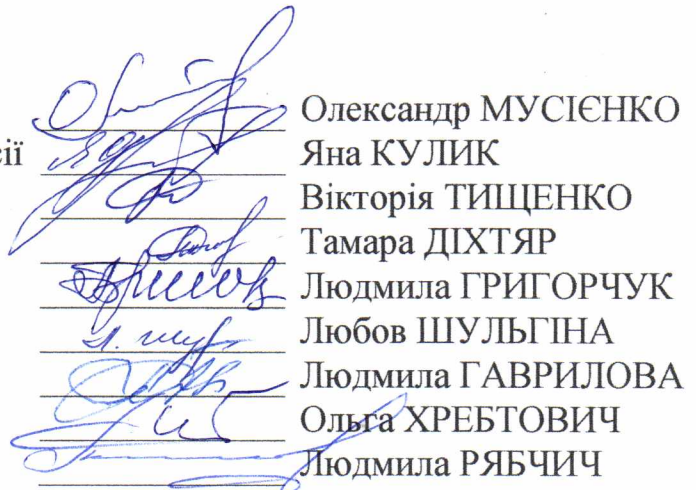 Олександр МУСІЄНКО
ії Яна КУЛИК
Вікторія ТИЩЕНКО
Тамара ДІХТЯР
Людмила ГРИГОРЧУК
Любов ШУЛЬГІНА
Людмила ГАВРИЛОВА
Ольга ХРЕБТОВИЧ
Людмила РЯБЧИЧ